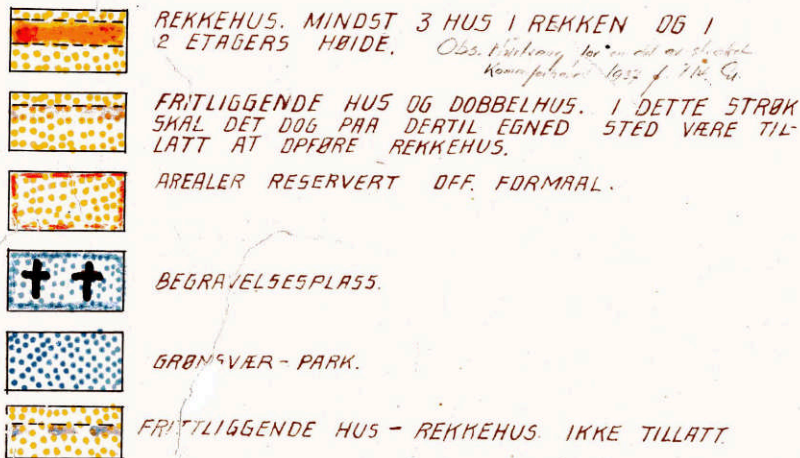 REKKEHUS. MINDST 3 HUS I REKKEN OG I
2 ETAGERS HØIDE.
Obs.
FRITLIGGENDE HUS OG DOBBELHUS. I DETTE STRØK
SKAL DET DOG PAA DERTIL EGNED STED VÆRE TIL-
LATT AT OPFØRE REKKEHUS.
AREALER RESERVERT OFF. FORMAAL.
BEGRAVELSESPLASS.
GRØNSVÆR - PARK.
FRITTLIGGENDE HUS - REKKEHUS. IKKE TILLATT.